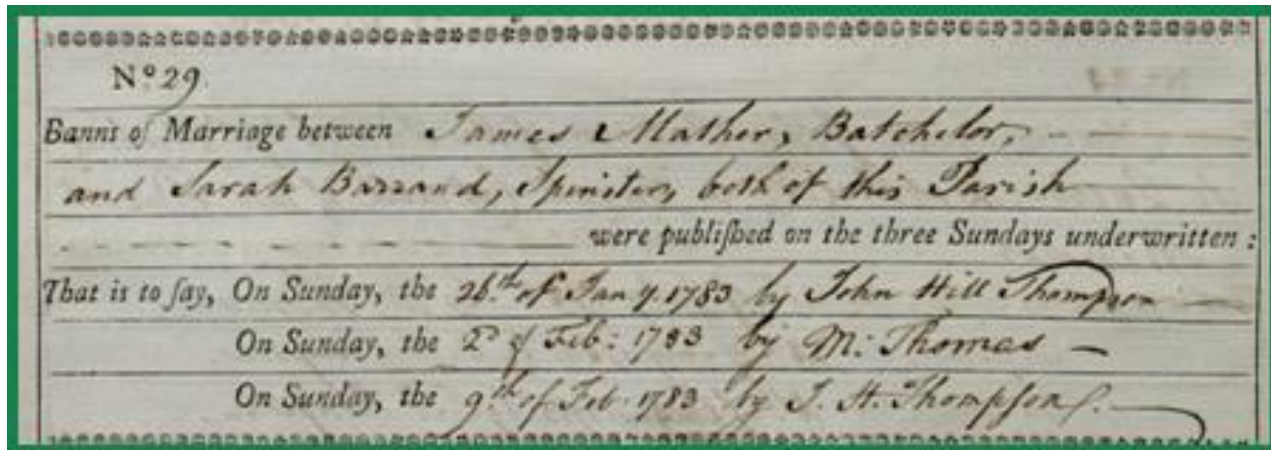 Nº 29
Banns of Marriage between James Mather, Batchelor,
and Sarah Barrand, Spinster, both of this Parish
were publiſhed on the three Sundays underwritten :
That is to ſay, On Sunday, the 26.th of Jany. 1783 by John Hill Thompson
On Sunday, the 2d of Feb: 1783 by M: Thomas
On Sunday, the 9.th of Feb. 1783 by J. H. Thompſon.